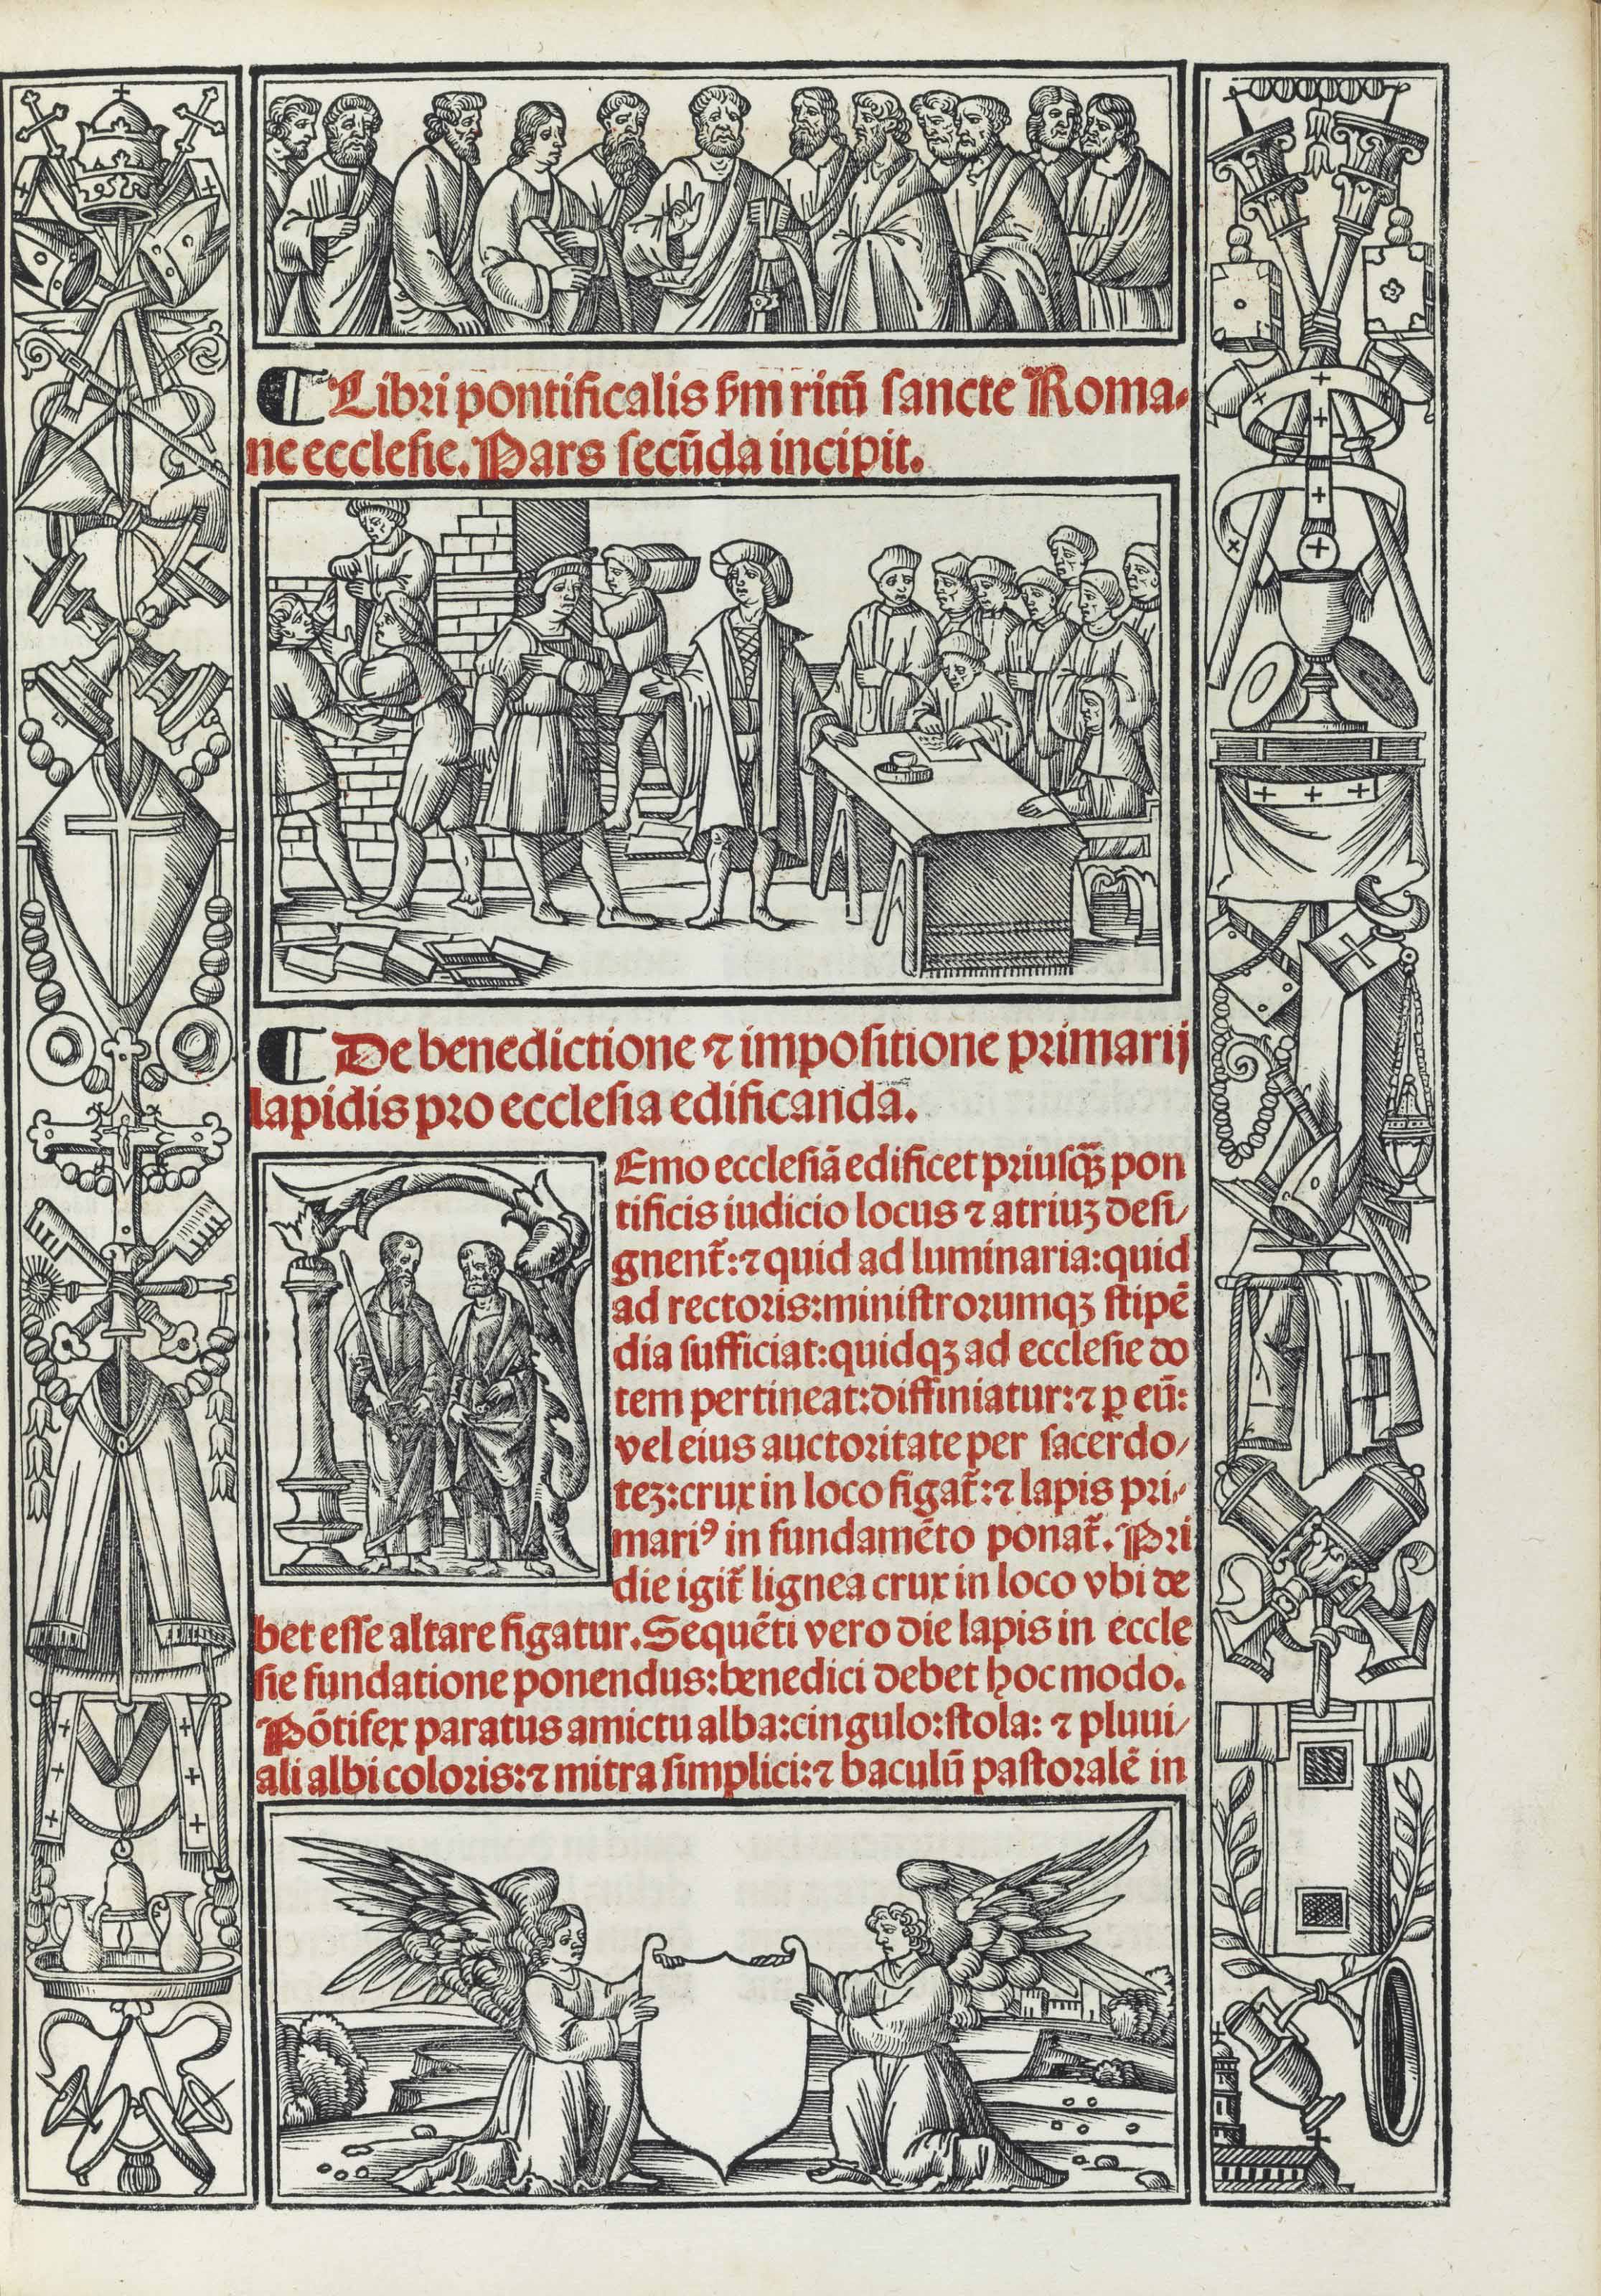 ¶ Libri pontificalis ẜm ritū sancte Roma-
ne ecclesie. Pars secūda incipit.
¶ De benedictione ⁊ impositione primarij
lapidis pro ecclesia edificanda.
Emo ecclesiã edificet priusꝗ̃ꝫ pon
tificis iudicio locus ⁊ atriuꝫ desi/
gnent̃: ⁊ quid ad luminaria: quid
ad rectoris: ministrorumqꝫ stipẽ
dia sufficiat: quidqꝫ ad ecclesie do
tem pertineat: diffiniatur: ⁊ ꝑ eũ:
vel eius auctoritate per sacerdo/
teꝫ: crux in loco figat̃: ⁊ lapis pri-
mariꝰ in fundamẽto ponat̃. Pri
die igit̃ lignea crux in loco vbi de
bet esse altare figatur. Sequẽti vero die lapis in eccle
sie fundatione ponendus: benedici debet hoc modo.
Põtifex paratus amictu alba: cingulo: stola: ⁊ pluui/
ali albi coloris: ⁊ mitra simplici: ⁊ baculũ pastoralẽ in